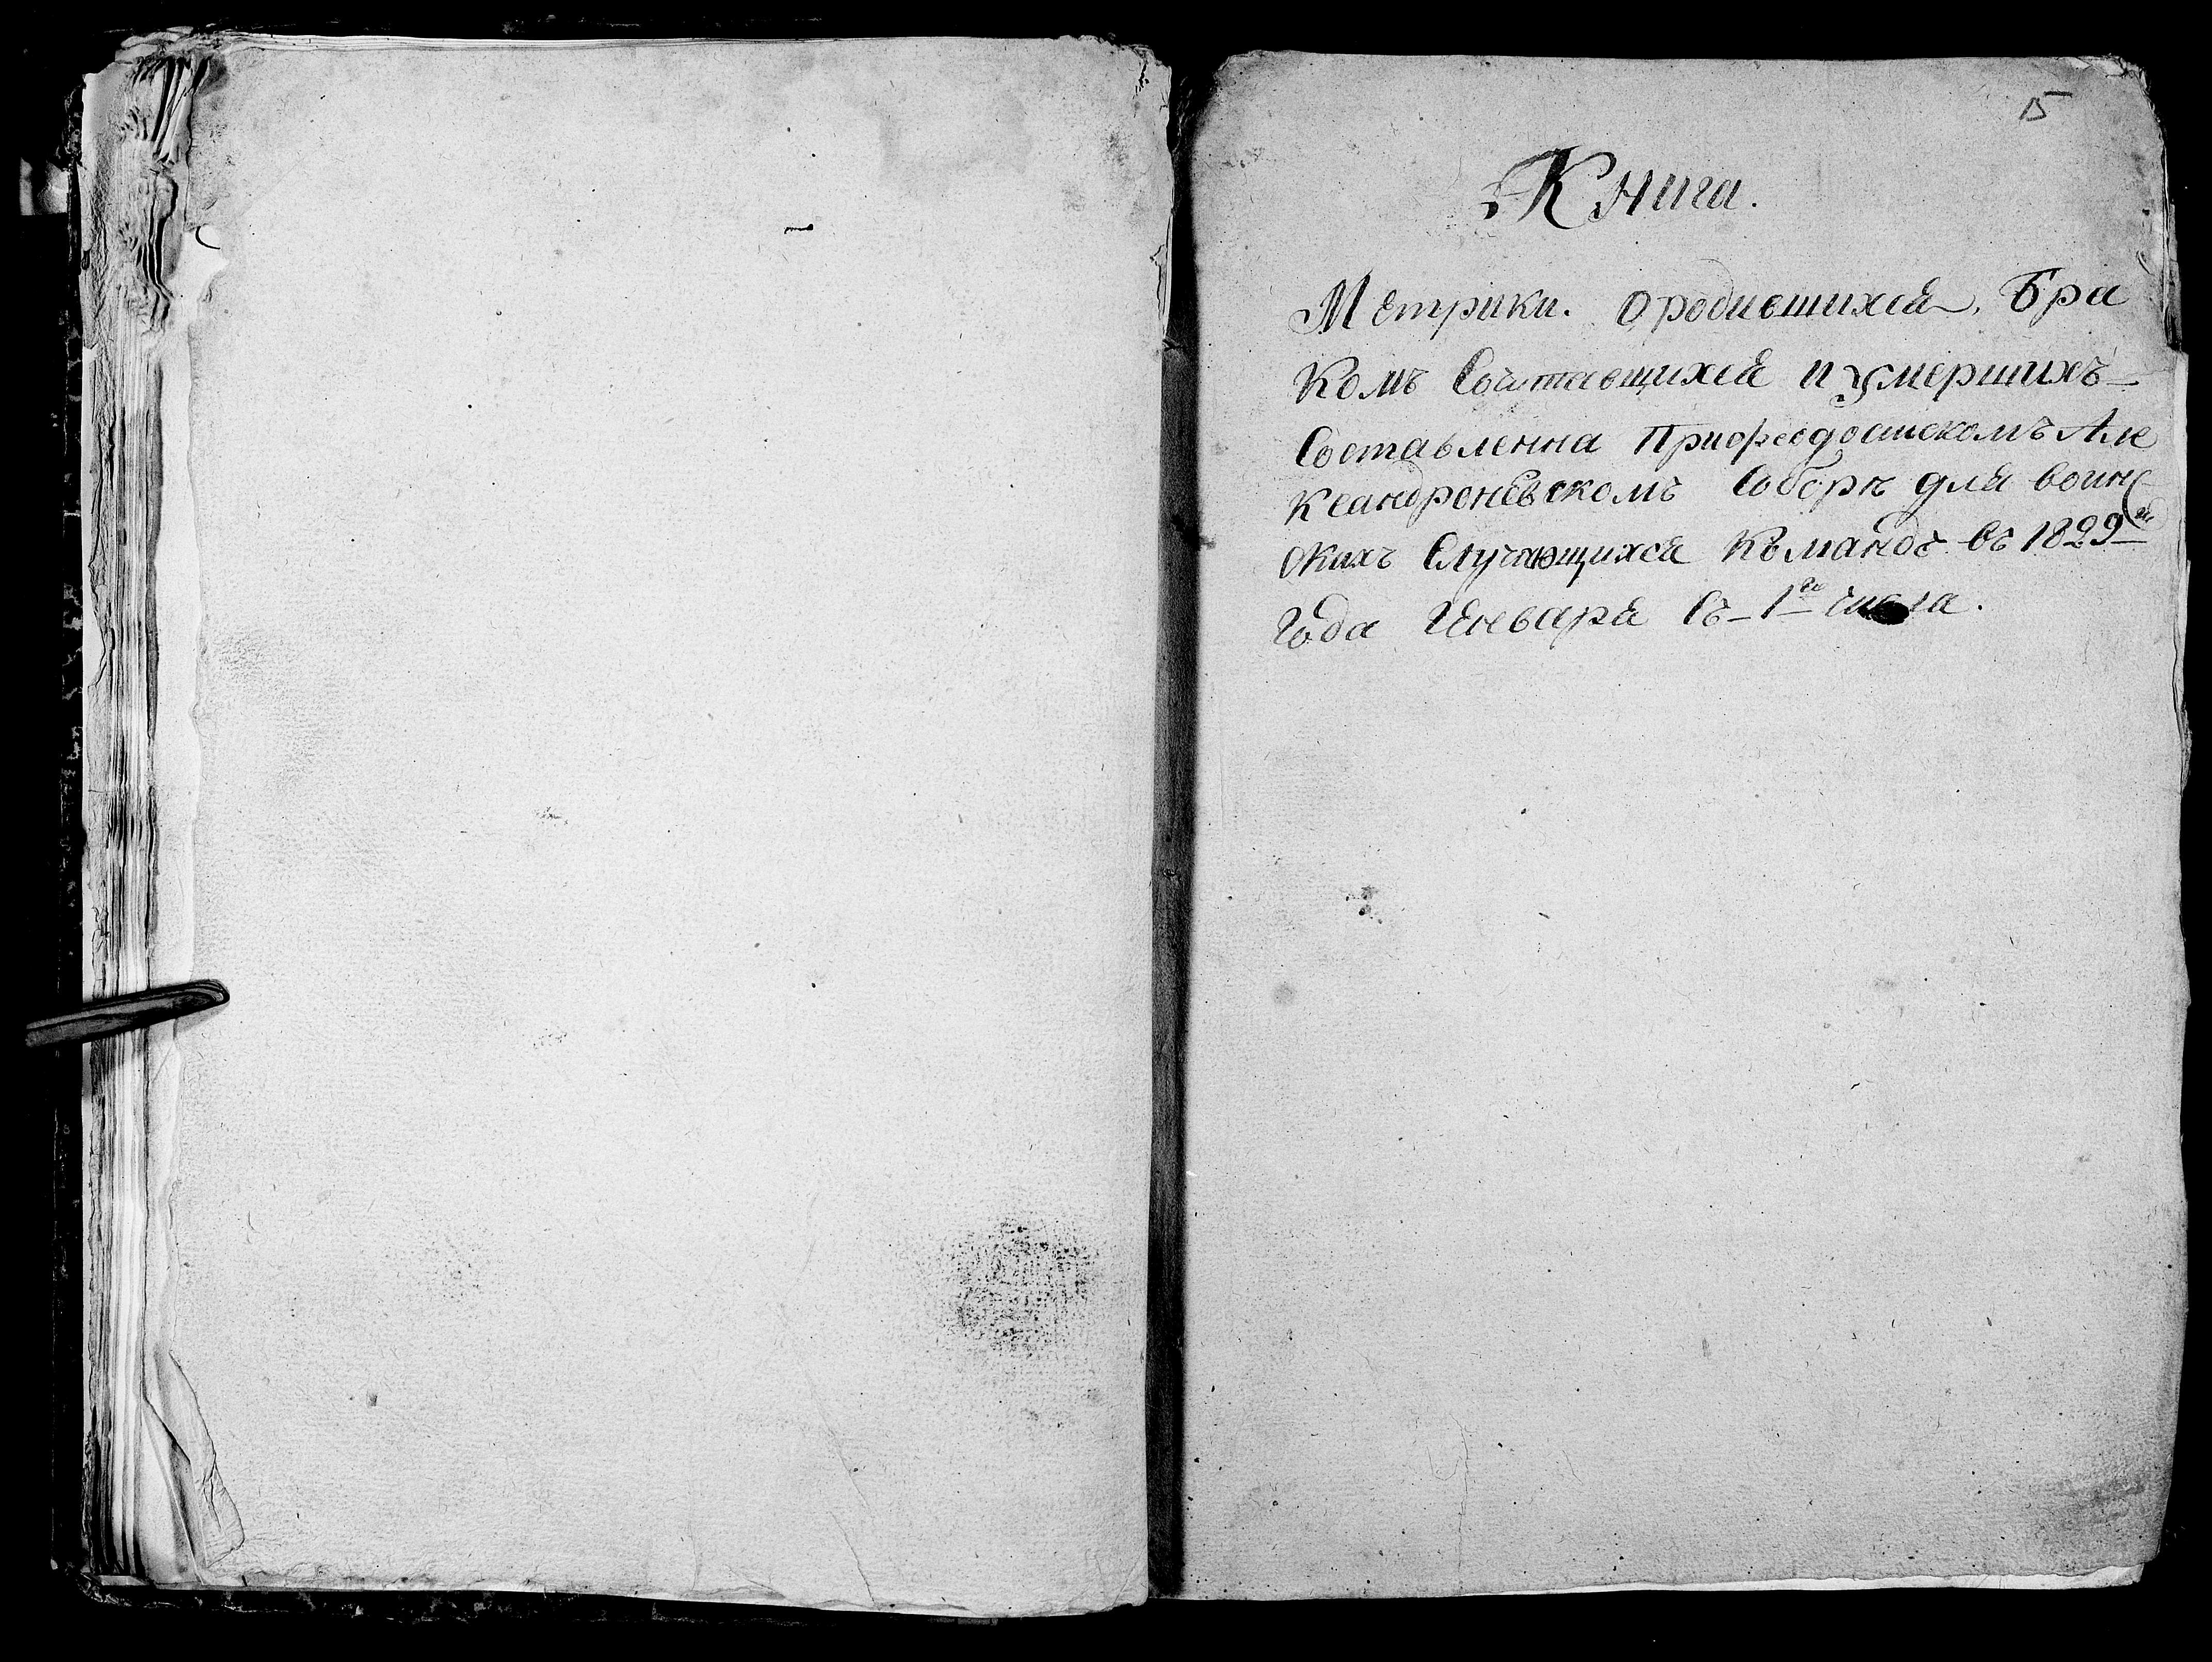 15
Книга.
Метрики. Ородившихся, Бра
комъ Сочитавщихся и умершихъ
Составленна Приѳеодосискомъ Але
ксандроневскомъ Соборѣ для воин
скихъ Случающихся Командъ въ 1829м
Года Генваря съ 1го числа.